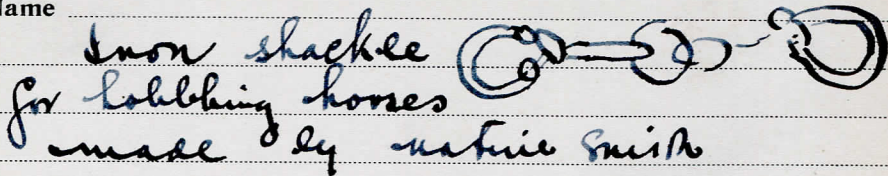 Name
Iron shackle
for hobbling horses
made by native smith